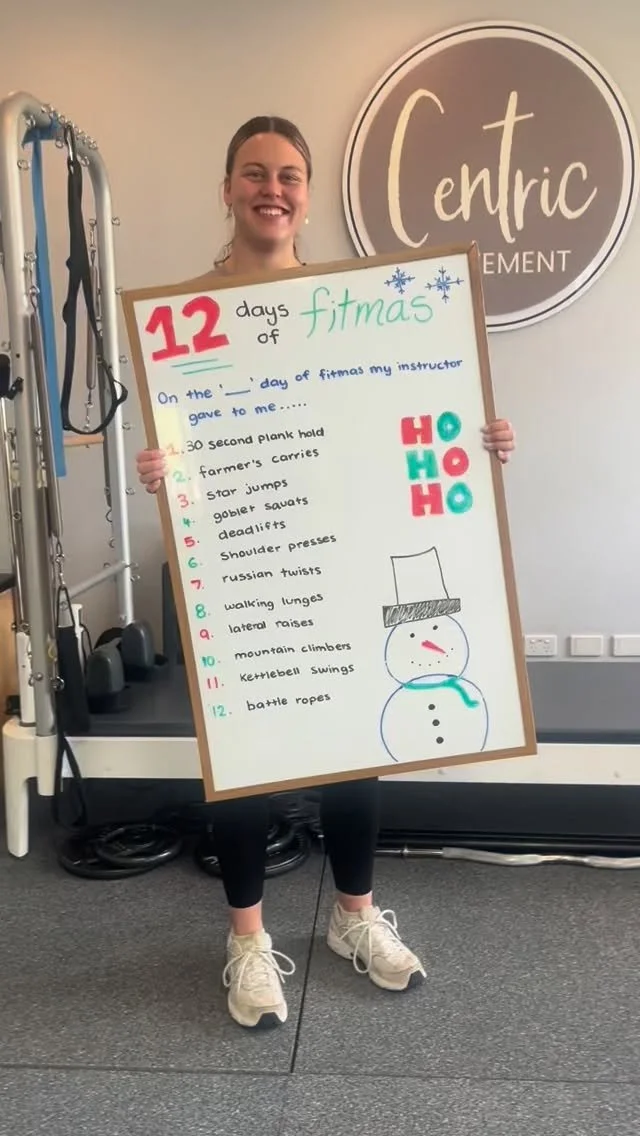 Centric
EMENT
12 days of fitmas
On the '__' day of fitmas my instructor
gave to me.....
1. 30 second plank hold
2. farmer's carries
3. star jumps
4. goblet squats
5. deadlifts
6. shoulder presses
7. russian twists
8. walking lunges
9. lateral raises
10. mountain climbers
11. kettlebell swings
12. battle ropes
HO
HO
HO